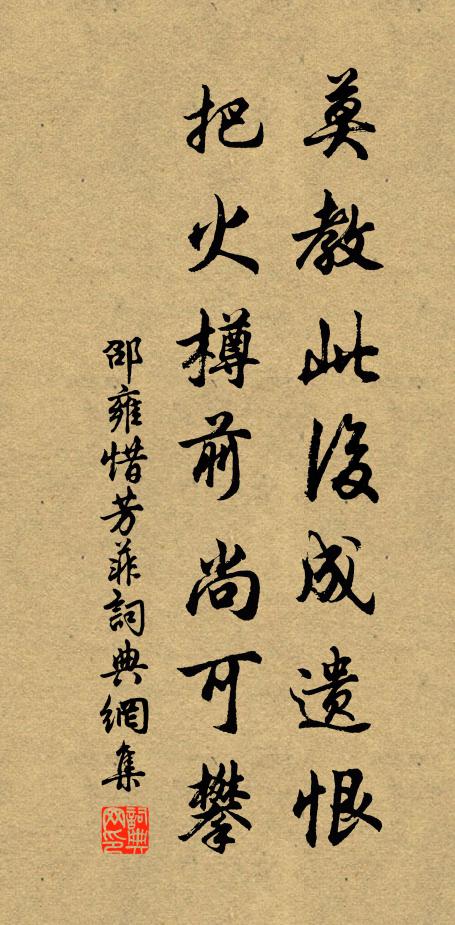 莫教此後成遺恨
把火樽前尚可攀
邵雍惜芳菲詞典網集
詞典網印